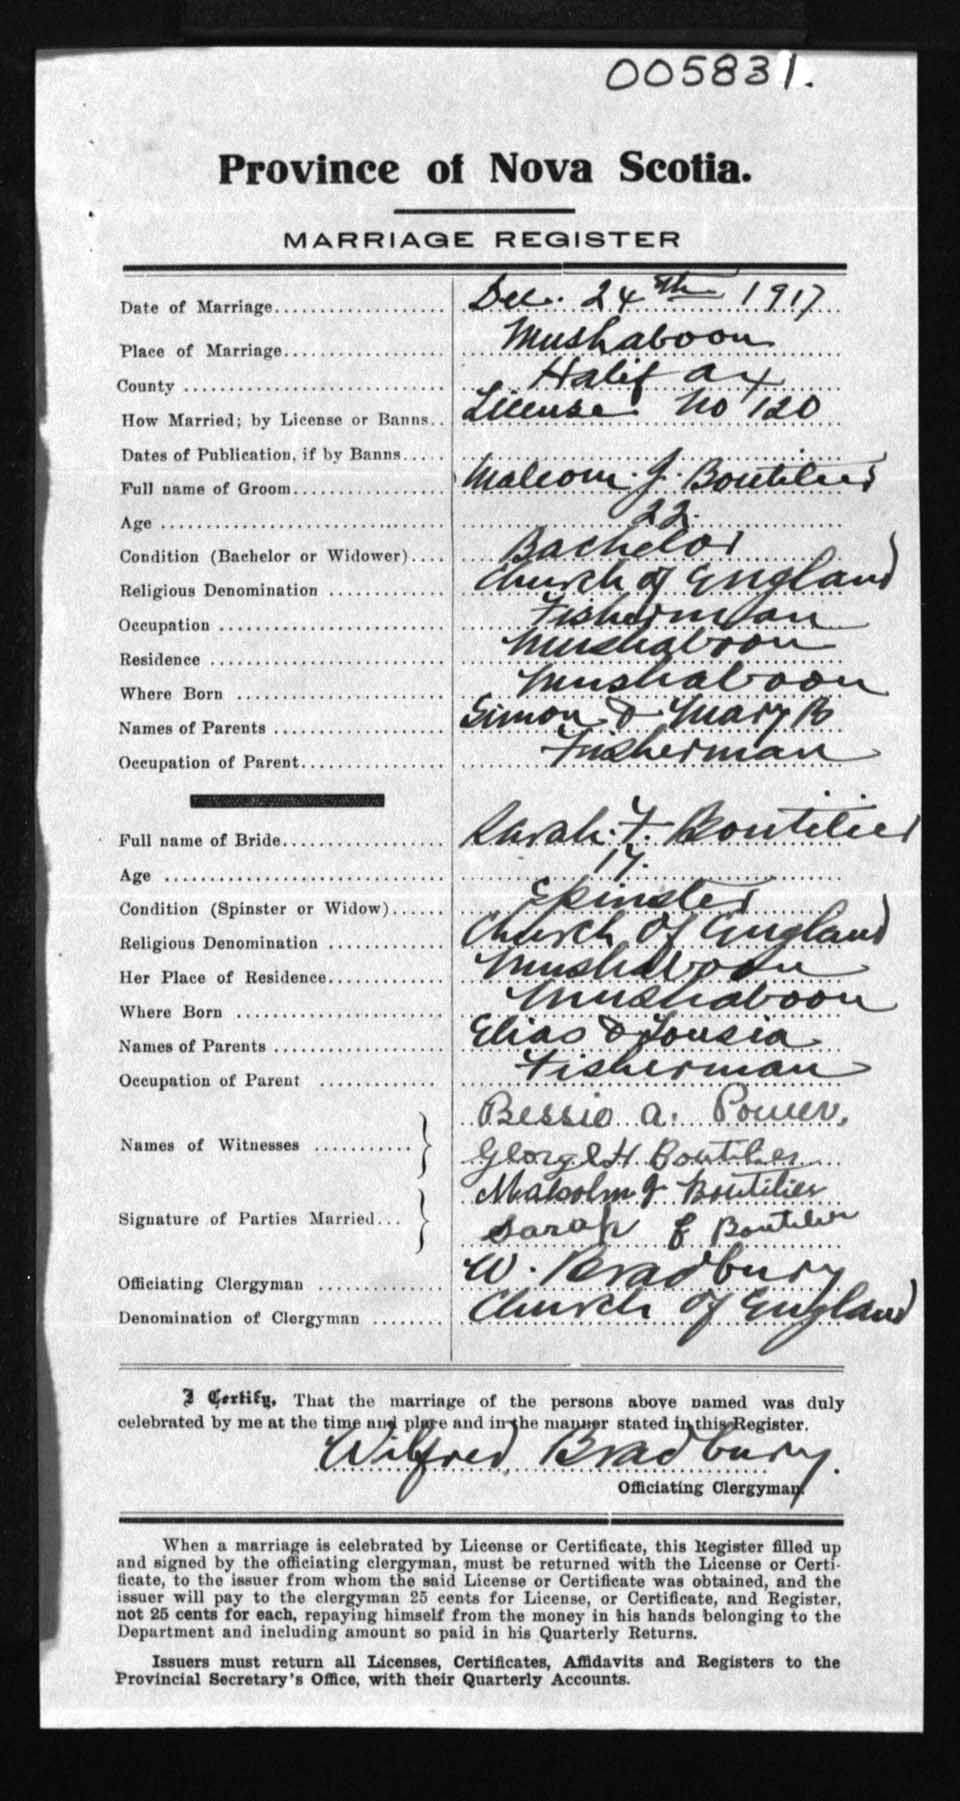 005831.
Province of Nova Scotia.
MARRIAGE REGISTER
Date of Marriage.................. Dec. 24th 1917
Place of Marriage................. Mushaboon
County ........................... Halifax
How Married; by License or Banns.. License No 120
Dates of Publication, if by Banns.....
Full name of Groom................ Malcom. J. Boutilier
Age .............................. 22.
Condition (Bachelor or Widower).... Bachelor
Religious Denomination ............ Church of England
Occupation ....................... Fisherman
Residence ........................ Mushaboon
Where Born ....................... Mushaboon
Names of Parents ................. Simon & Mary B
Occupation of Parent.............. Fisherman
Full name of Bride................ Sarah. F. Boutilier
Age .............................. 17.
Condition (Spinster or Widow)...... Spinster
Religious Denomination ............ Church of England
Her Place of Residence............ Mushaboon
Where Born ....................... Mushaboon
Names of Parents ................. Elias & Lousia
Occupation of Parent ............. Fisherman
Bessie A. Power.
Names of Witnesses ...........
George H Boutilier
Malcolm J Boutilier
Signature of Parties Married...
Sarah F Boutilier
Officiating Clergyman ............. W. Bradbury
Denomination of Clergyman ........ Church of England
I Certify, That the marriage of the persons above named was duly
celebrated by me at the time and place and in the manner stated in this Register.
Wilfred Bradbury.
Officiating Clergyman.
When a marriage is celebrated by License or Certificate, this Register filled up
and signed by the officiating clergyman, must be returned with the License or Certi-
ficate, to the issuer from whom the said License or Certificate was obtained, and the
issuer will pay to the clergyman 25 cents for License, or Certificate, and Register,
not 25 cents for each, repaying himself from the money in his hands belonging to the
Department and including amount so paid in his Quarterly Returns.
Issuers must return all Licenses, Certificates, Affidavits and Registers to the
Provincial Secretary's Office, with their Quarterly Accounts.